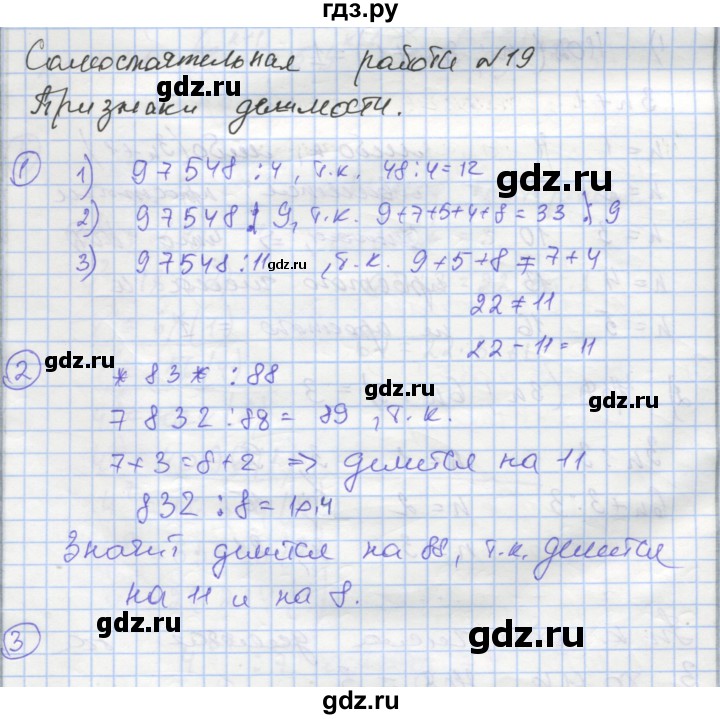 гдз.ру
Самостоятельная работа №19
Признаки делимости.
1 1) 97548 : 4, т.к. 48 : 4 = 12
2) 97548 ⋮̸ 9, т.к. 9+7+5+4+8 = 33 ⋮̸ 9
3) 97548 : 11 , т.к. 9+5+8 ≠ 7+4
gdz.ru
22 ≠ 11
22 - 11 = 11
gdz.ru
2 *83* : 88
gdz.ru
7832 : 88 = 89, т.к.
7+3 = 8+2 => делится на 11
832 : 8 = 104
gdz.ru
Значит делится на 88, т.к. делится
на 11 и на 8.
gdz.ru
gdz.ru
3
gdz.ru